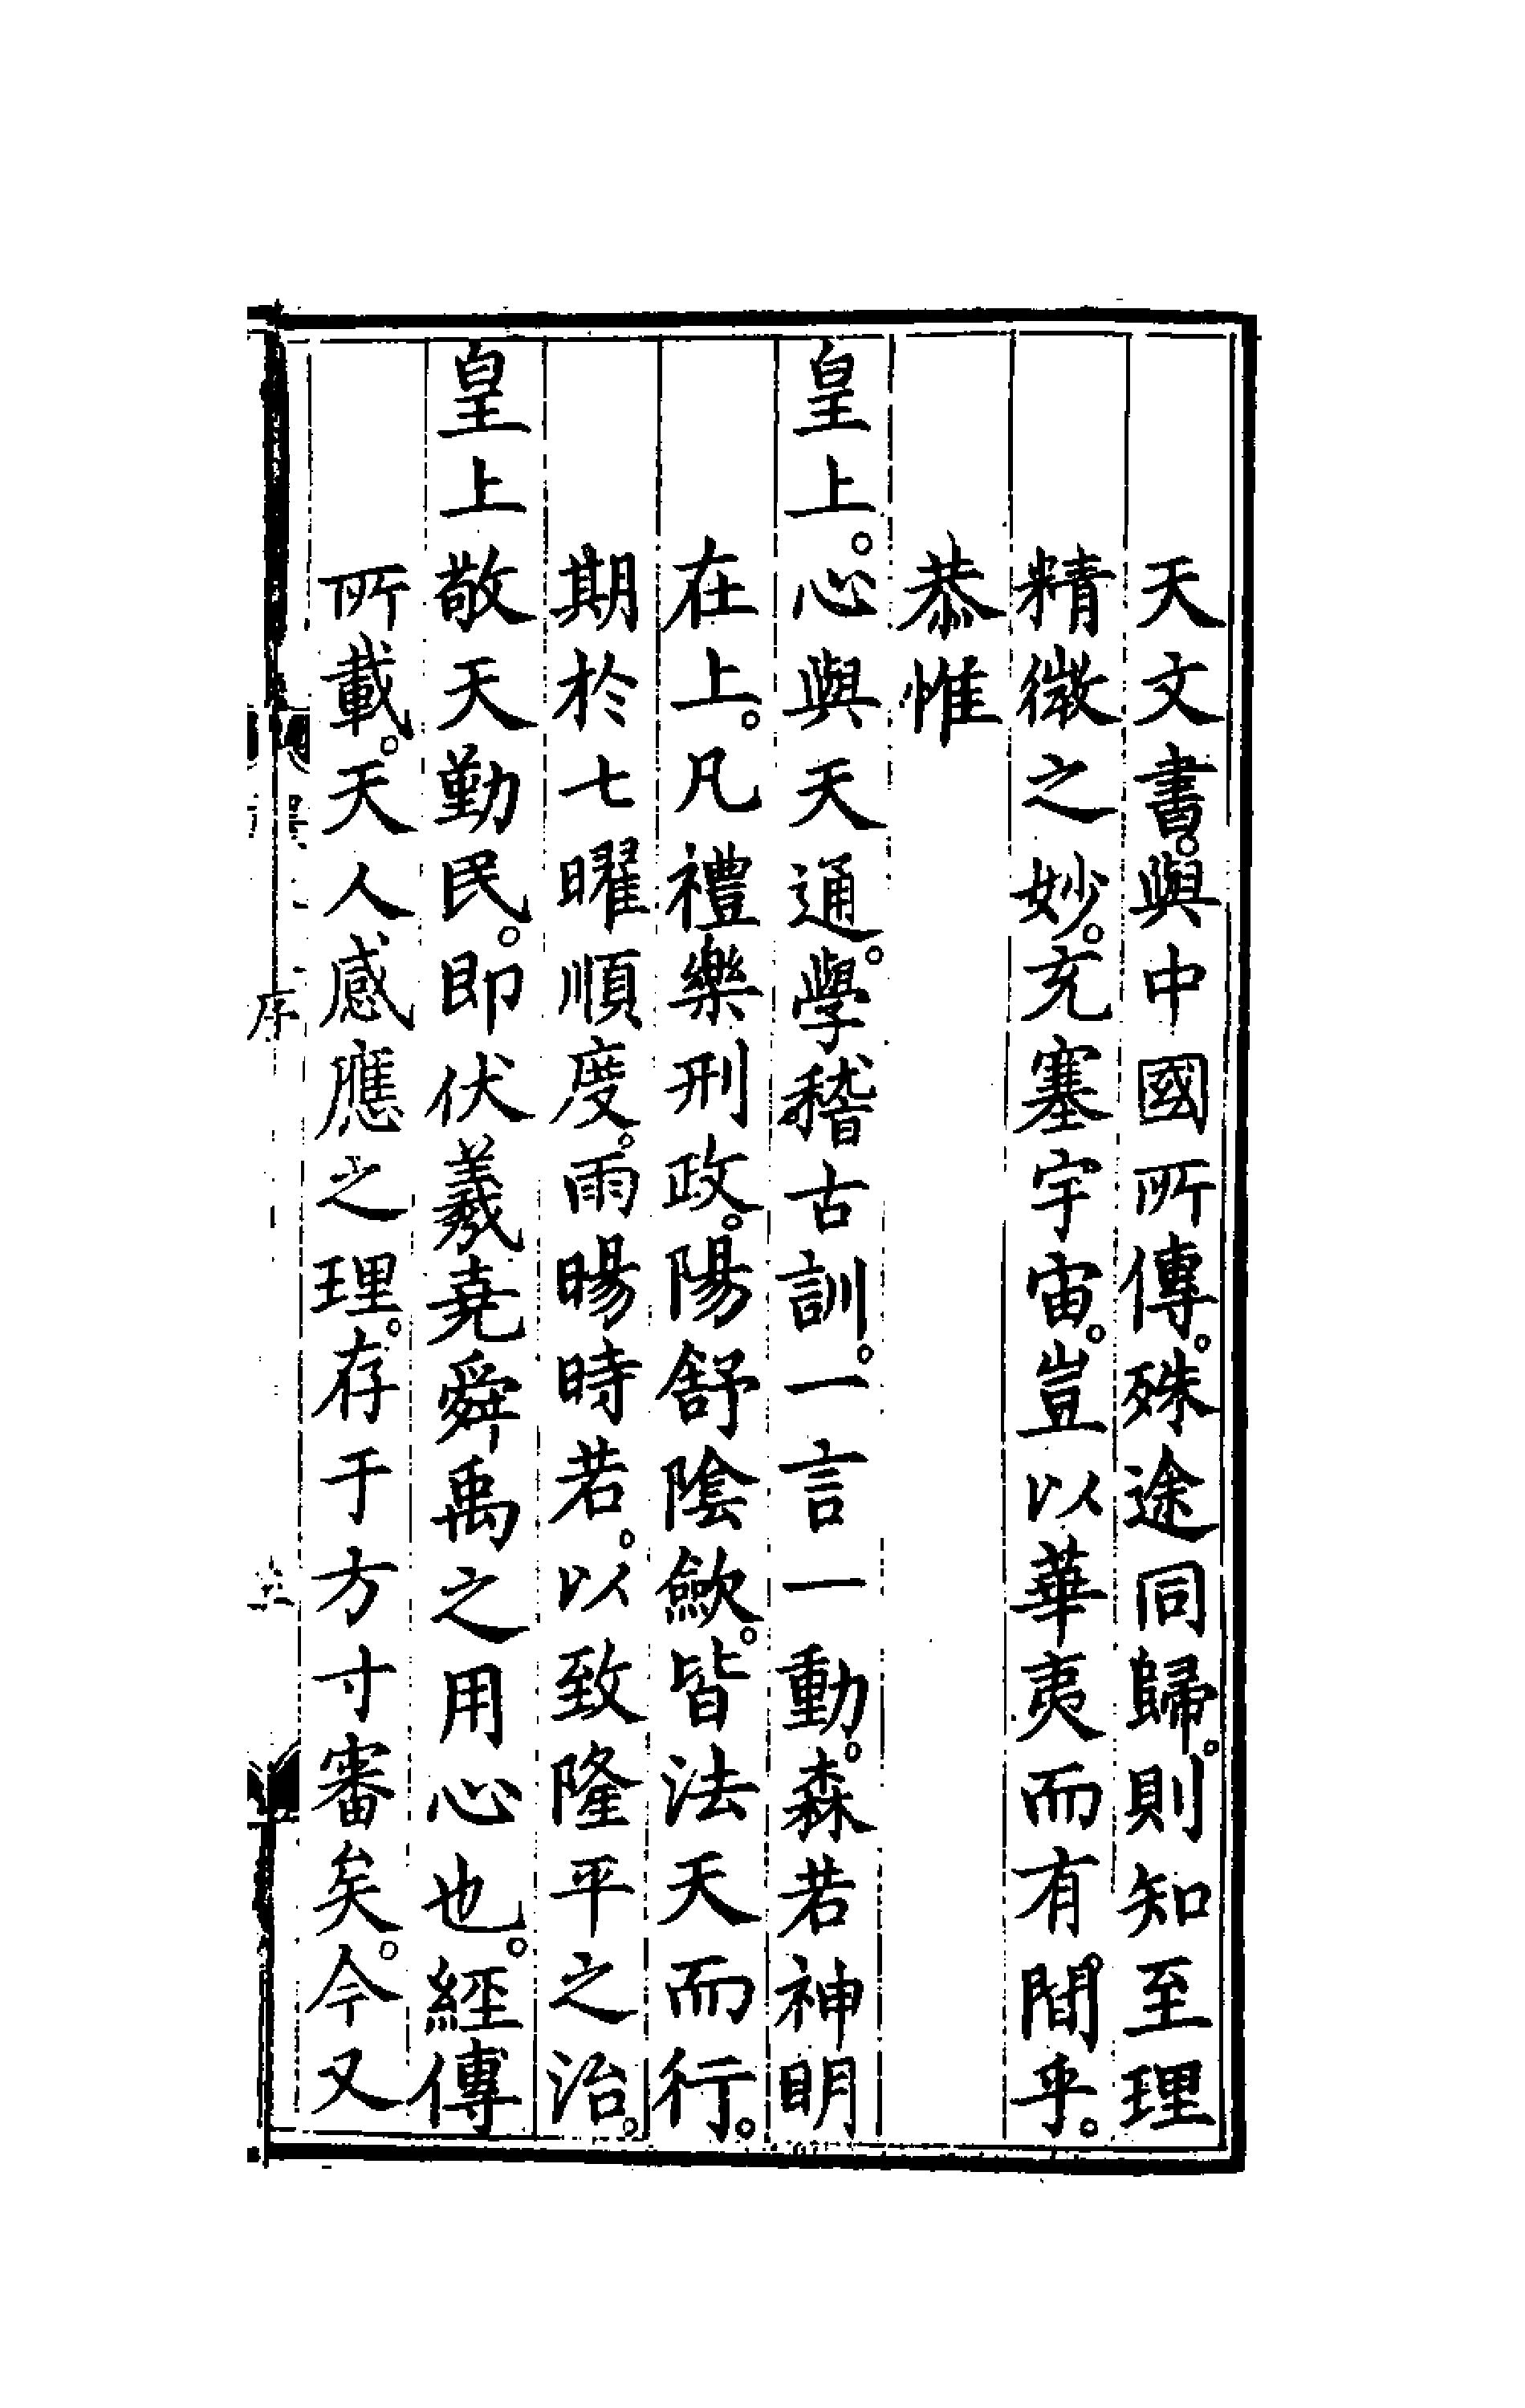 天文書。與中國所傳。殊途同歸。則知至理
精微之妙。充塞宇宙。豈以華夷而有間乎。
恭惟
皇上。心與天通。學稽古訓。一言一動。森若神明
在上。凡禮樂刑政。陽舒陰歛。皆法天而行。
期於七曜順度。雨暘時若。以致隆平之治。
皇上敬天勤民。即伏羲堯舜禹之用心也。經傳
所載。天人感應之理。存于方寸審矣。今又
序